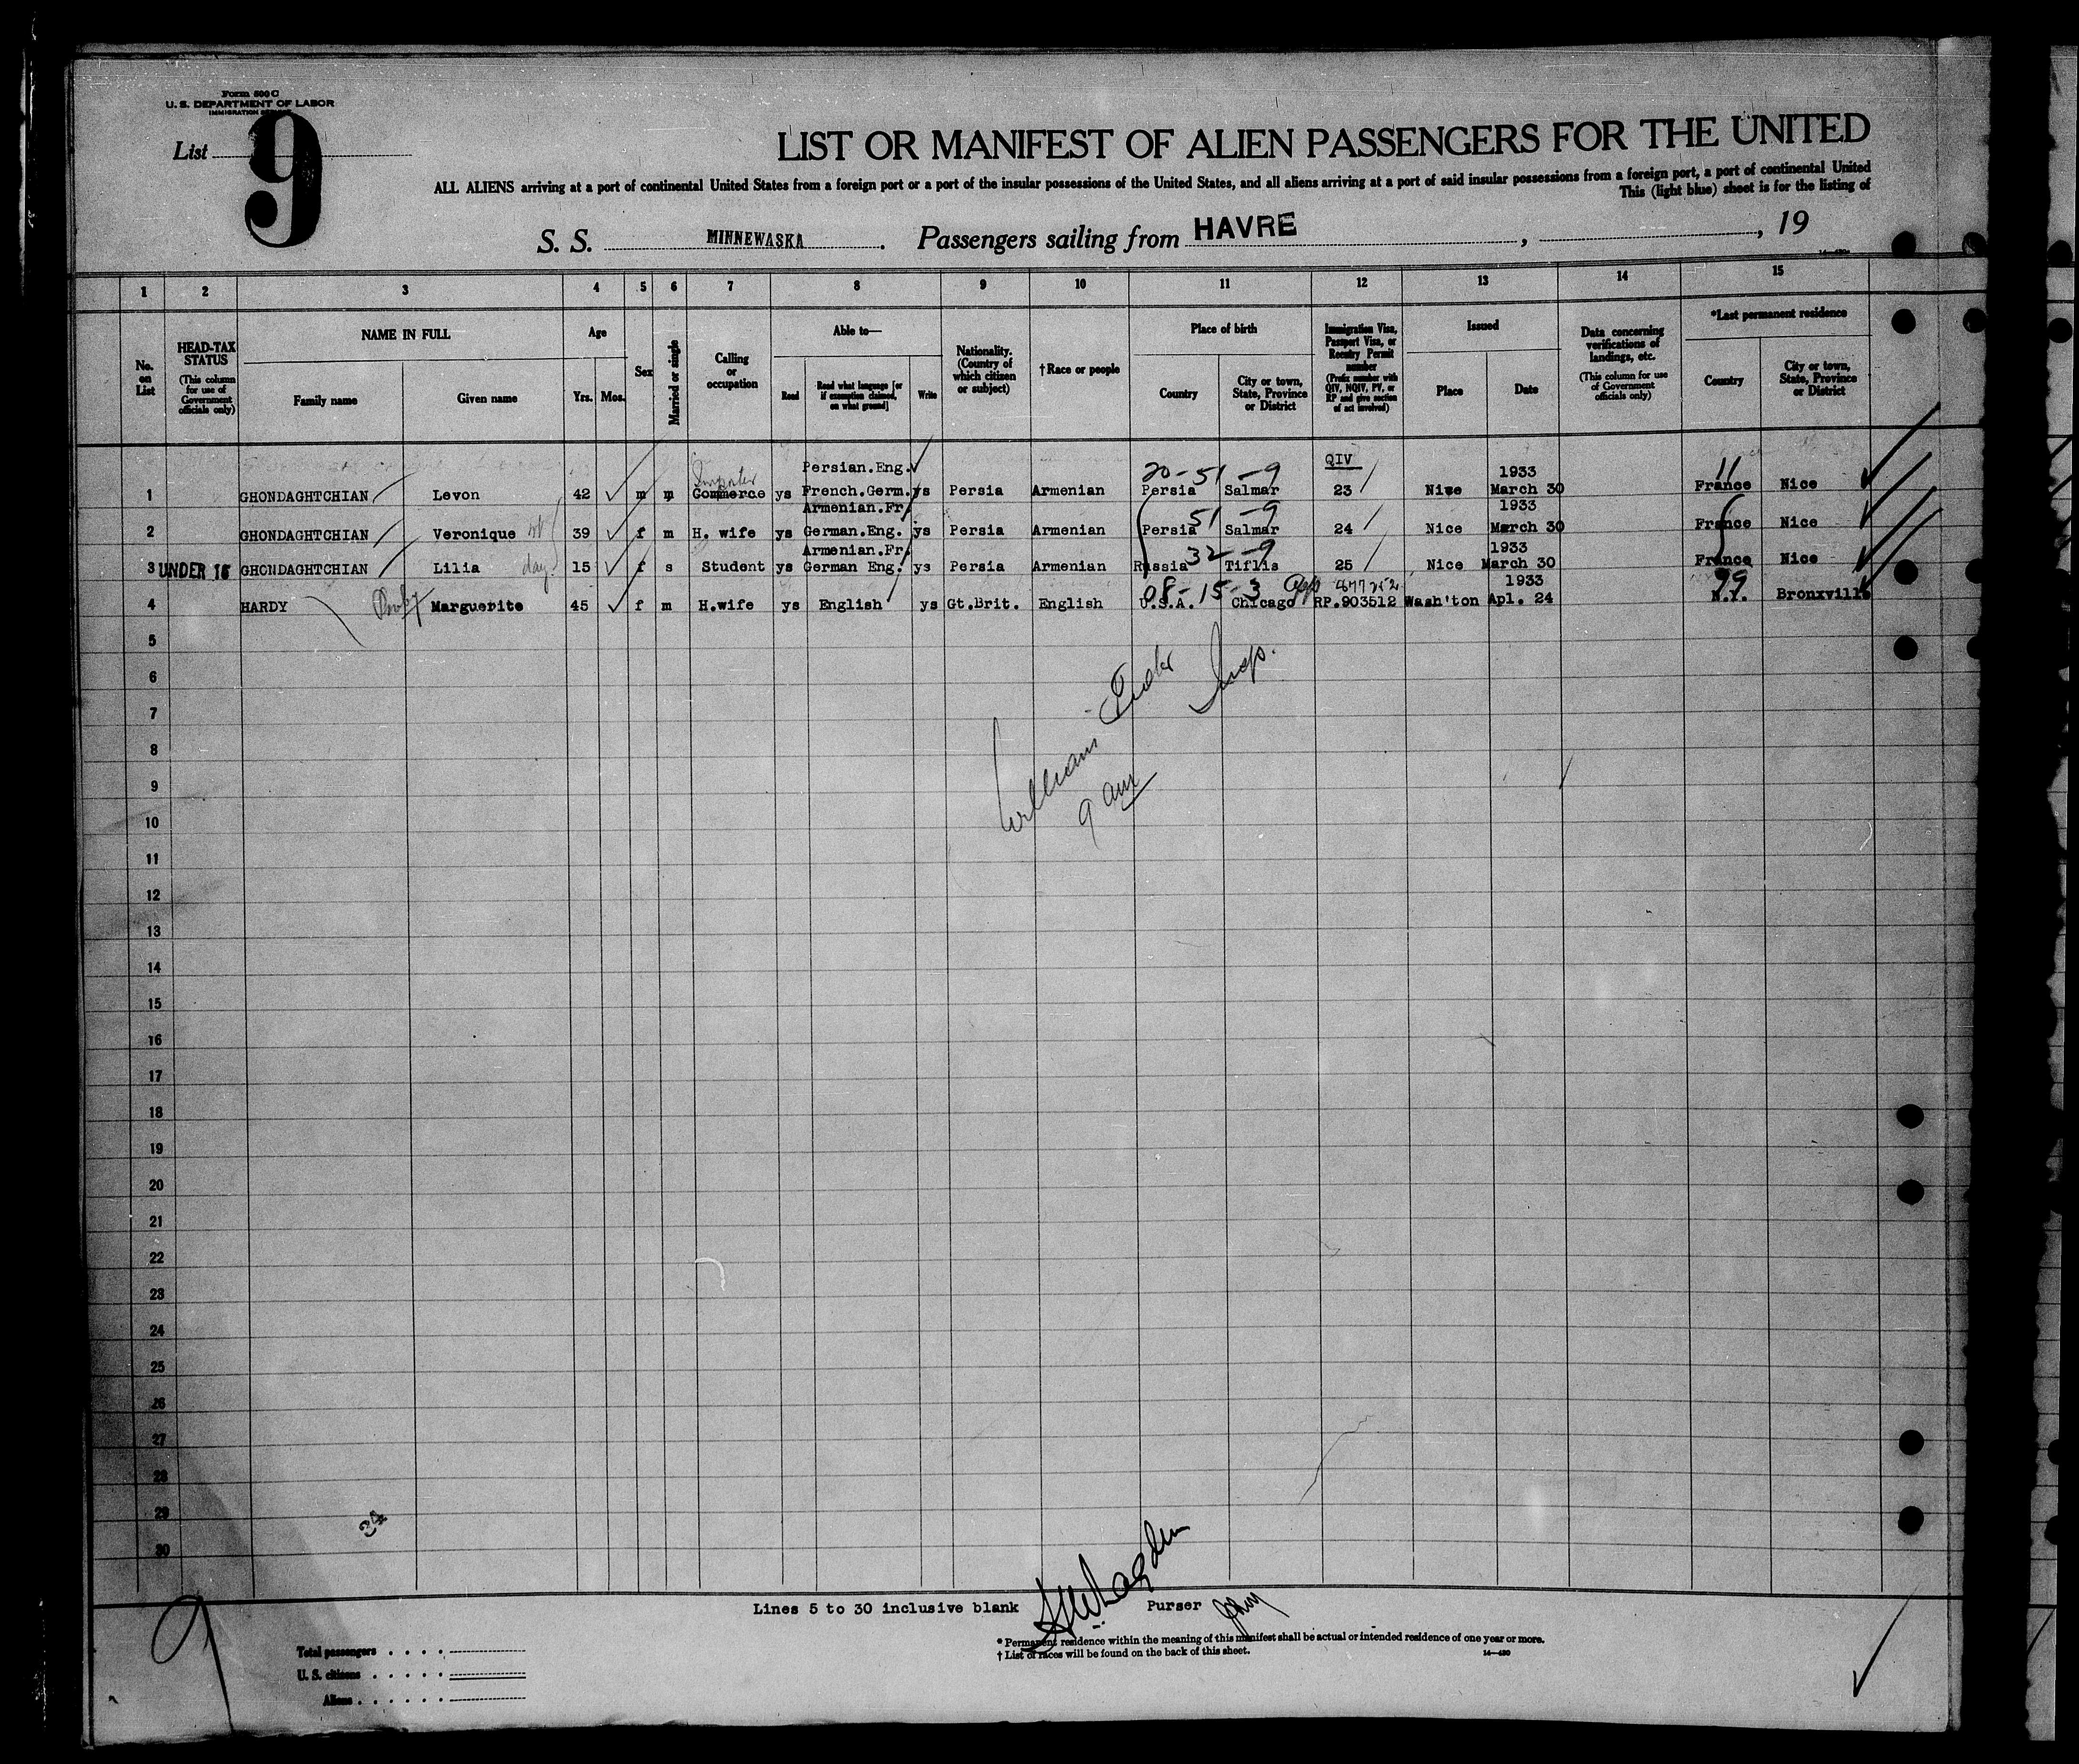 Form 500 C
U. S. DEPARTMENT OF LABOR
List 9
LIST OR MANIFEST OF ALIEN PASSENGERS FOR THE UNITED
ALL ALIENS arriving at a port of continental United States from a foreign port or a port of the insular possessions of the United States, and all aliens arriving at a port of said insular possessions from a foreign port, a port of continental United
This (light blue) sheet is for the listing of
S. S. MINNEWASKA. Passengers sailing from HAVRE, , 19
1 2 3 4 5 6 7 8 9 10 11 12 13 14 15
No. on List
HEAD-TAX STATUS (This column for use of Government officials only)
NAME IN FULL
Family name
Given name
Age
Yrs. Mos.
Sex
Married or single
Calling or occupation
Able to—
Read
Read what language [or if exemption claimed, on what ground]
Write
Nationality. (Country of which citizen or subject)
†Race or people
Place of birth
Country
City or town, State, Province or District
Immigration Visa, Passport Visa, or Reentry Permit number (Prefix number with QIV, NQIV, PV, or RP and give section of act involved)
Issued
Place
Date
Data concerning verifications of landings, etc. (This column for use of Government officials only)
*Last permanent residence
Country
City or town, State, Province or District
Importer Persian.Eng. 20-51-9 QIV 1933 11
1 GHONDAGHTCHIAN Levon 42 m m Commerce ys French.Germ. ys Persia Armenian Persia Salmar 23 Nice March 30 France Nice
Armenian.Fr. 51-9 1933
2 GHONDAGHTCHIAN Veronique wf 39 f m H. wife ys German.Eng. ys Persia Armenian Persia Salmar 24 Nice March 30 France Nice
Armenian.Fr. 32-9 1933
3 UNDER 16 GHONDAGHTCHIAN Lilia dau 15 f s Student ys German Eng. ys Persia Armenian Russia Tiflis 25 Nice March 30 France Nice
08-15-3 877252 1933 99
4 HARDY Marguerite 45 f m H.wife ys English ys Gt.Brit. English U.S.A. Chicago RP.903512 Wash'ton Apl. 24 N.Y. Bronxville
5
6
7
8
9
10
11
12
13
14
15
16
17
18
19
20
21
22
23
24
25
26
27
28
29
30
William Insp.
9 am
34
Lines 5 to 30 inclusive blank Purser
9
Total passengers
U. S. citizens
Aliens
* Permanent residence within the meaning of this manifest shall be actual or intended residence of one year or more.
† List of races will be found on the back of this sheet.
14—430